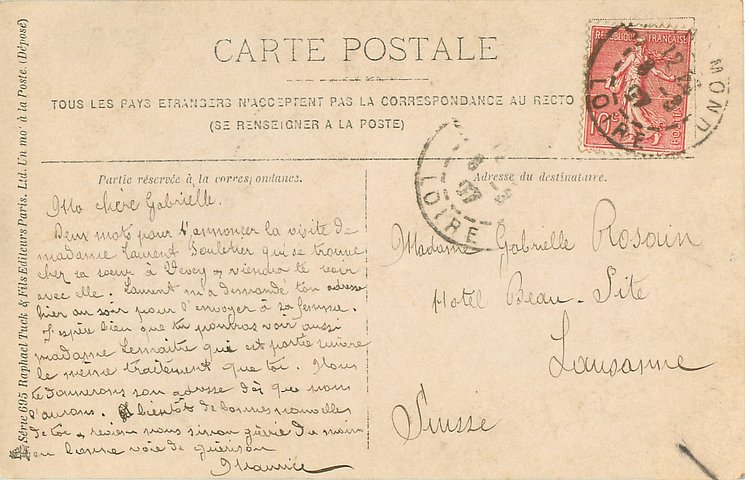 CARTE POSTALE
TOUS LES PAYS ETRANGERS N'ACCEPTENT PAS LA CORRESPONDANCE AU RECTO
(SE RENSEIGNER A LA POSTE)
Partie réservée à la correspondance.
Ma chère Gabrielle.
Deux mots pour t'annoncer la visite de
madame Laurent qui se trouve
chez sa soeur à Vevey & viendra te voir
avec elle. Laurent m'a demandé ton adresse
hier au soir pour l'envoyer à sa femme.
J'espère bien que tu pourras voir aussi
madame Lemaitre qui est partie suivre
le même traitement que toi. Nous
te donnerons son adresse dès que nous
l'aurons. A bientôt de bonnes nouvelles
de toi & reviens nous sinon guérie du moins
en bonne voie de guérison
Maurice
Adresse du destinataire.
Madame Gabrielle Rosain
Hotel Beau-Site
Lausanne
Suisse
REPUBLIQUE FRANÇAISE
10c
POSTES
MOND
LOIRE
LOIRE
Série 695 Raphael Tuck & Fils Editeurs Paris. Ltd. Un mot à la Poste (Déposé)